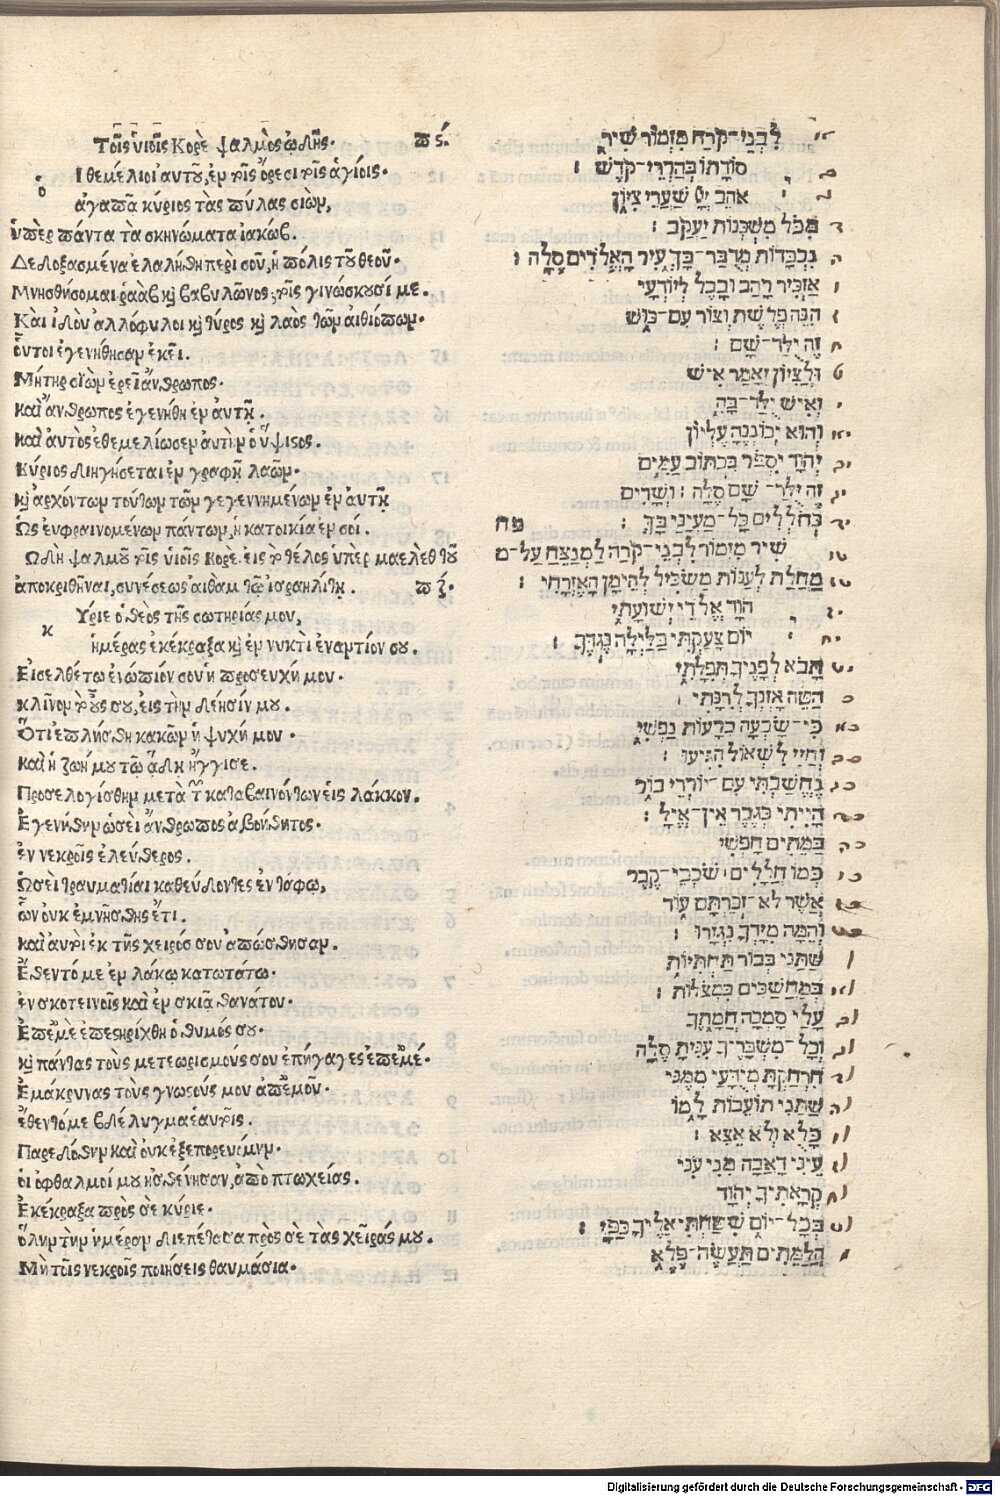 Τοῖς υἱοῖς Κορὲ ψαλμὸς ὠδῆς. πϛ.
οἱ θεμέλιοι αὐτοῦ, ἐν τοῖς ὄρεσι τοῖς ἁγίοις.
ἀγαπᾷ κύριος τὰς πύλας σιὼν,
ὑπὲρ πάντα τὰ σκηνώματα ἰακώβ.
Δεδοξασμένα ἐλαλήθη περὶ σοῦ, ἡ πόλις τοῦ θεοῦ.
Μνησθήσομαι ῥαὰβ καὶ βαβυλῶνος, τοῖς γινώσκουσί με.
Καὶ ἰδοὺ ἀλλόφυλοι καὶ τύρος καὶ λαὸς τῶν αἰθιόπων.
οὗτοι ἐγενήθησαν ἐκεῖ.
Μήτηρ σιὼν ἐρεῖ ἄνθρωπος.
καὶ ἄνθρωπος ἐγενήθη ἐν αὐτῇ.
καὶ αὐτὸς ἐθεμελίωσεν αὐτὴν ὁ ὕψιστος.
Κύριος διηγήσεται ἐν γραφῇ λαῶν.
καὶ ἀρχόντων τούτων τῶν γεγεννημένων ἐν αὐτῇ.
Ὡς ἐυφραινομένων πάντων, ἡ κατοικία ἐν σοί.
Ὠδὴ ψαλμοῦ τοῖς υἱοῖς Κορὲ. εἰς τὸ τέλος ὑπὲρ μαελὲθ τοῦ
ἀποκριθῆναι, συνέσεως αἰθὰμ τῷ ἰσραηλίτῃ. πζ.
κ Ύριε ὁ θεὸς τῆς σωτηρίας μου,
ἡμέρας ἐκέκραξα καὶ ἐν νυκτὶ ἐναντίον σου.
Εἰσελθέτω ἐνώπιόν σου ἡ προσευχή μου.
κλῖνον τὸ οὖς σου, εἰς τὴν δέησίν μου.
Ὅτι ἐπλήσθη κακῶν ἡ ψυχή μου.
καὶ ἡ ζωή μου τῷ ᾅδῃ ἤγγισε.
Προσελογίσθην μετὰ τῶν καταβαινόντων εἰς λάκκον.
Ἐγενήθην ὡσεὶ ἄνθρωπος ἀβοήθητος.
ἐν νεκροῖς ἐλεύθερος.
Ὡσεὶ τραυματίαι καθεύδοντες ἐν τάφῳ,
ὧν οὐκ ἐμνήσθης ἔτι.
καὶ αὐτοὶ ἐκ τῆς χειρός σου ἀπώσθησαν.
Ἔθεντό με ἐν λάκω κατωτάτω.
ἐν σκοτεινοῖς καὶ ἐν σκιᾷ θανάτου.
Ἐπ᾽ἐμὲ ἐπεστηρίχθη ὁ θυμός σου.
καὶ πάντας τοὺς μετεωρισμούς σου ἐπήγαγες ἐπ᾽ἐμέ.
Ἐμάκρυνας τοὺς γνωστούς μου ἀπ᾽ἐμου.
ἔθεντό με βδέλυγμα ἑαυτοῖς.
Παρεδόθην καὶ οὐκ ἐξεπορευόμην.
οἱ ὀφθαλμοί μου ἠσθένησαν, ἀπὸ πτωχείας.
Ἐκέκραξα πρὸς σὲ κύριε.
ὅλην τὴν ἡμέραν διεπέτασα πρὸς σὲ τὰς χεῖράς μου.
Μὴ τοῖς νεκροῖς ποιήσεις θαυμάσια.
לִבְנֵי־קֹרַח מִזְמוֹר שִׁיר
סוּדָתוֹ בְּהַרְרֵי־קֹדֶשׁ׃
אֹהֵב יְיָ שַׁעֲרֵי צִיּוֹן
מִכֹּל מִשְׁכְּנוֹת יַעֲקֹב׃
נִכְבָּדוֹת מְדֻבָּר־בָּךְ עִיר הָאֱלֹדִים סֶלָה׃
אַזְכִּיר רַהַב וּבָבֶל לְיוֹדְעָי
הִנֵּה פְלֶשֶׁת וְצוֹר עִם־כּוּשׁ
זֶה יֻלַּד־שָׁם׃
וּלְצִיּוֹן יֵאָמַר אִישׁ
וְאִישׁ יֻלַּד־בָּהּ
וְהוּא יְכוֹנְנֶהָ עֶלְיוֹן
יְהוָֹד יִסְפֹּר בִּכְתוֹב עַמִּים
זֶה יֻלַּד־שָׁם סֶלָה׃ וְשָׁרִים
כְּחֹלְלִים כָּל־מַעְיָנַי בָּךְ׃ פח
שִׁיר מִזְמוֹר לִבְנֵי־קֹרַח לַמְנַצֵּחַ עַל־מ
מַחֲלַת לְעַנּוֹת מַשְׂכִּיל לְהֵימָן הָאֶזְרָחִי׃
הוָֹד אֱלֹדֵי יְשׁוּעָתִי
יוֹם צָעַקְתִּי בַלַּיְלָה נֶגְדֶּךָ׃
תָּבֹא לְפָנֶיךָ תְּפִלָּתִי
הַטֵּה אָזְנְךָ לְרִנָּתִי׃
כִּי־שָׂבְעָה בְרָעוֹת נַפְשִׁי
וְחַיַּי לִשְׁאוֹל הִגִּיעוּ׃
נֶחְשַׁבְתִּי עִם־יוֹרְדֵי בוֹר
הָיִיתִי כְּגֶבֶר אֵין־אֱיָל׃
בַּמֵּתִים חָפְשִׁי
כְּמוֹ חֲלָלִים שֹׁכְבֵי־קֶבֶר
אֲשֶׁר לֹא־זְכַרְתָּם עוֹד
וְהֵמָּה מִיָּדְךָ נִגְזָרוּ׃
שַׁתַּנִי בְּבוֹר תַּחְתִּיּוֹת
בְּמַחֲשַׁכִּים בִּמְצֹלוֹת׃
עָלַי סָמְכָה חֲמָתֶךָ
וְכָל־מִשְׁבָּרֶיךָ עִנִּיתָ סֶּלָה
הִרְחַקְתָּ מְיֻדָּעַי מִמֶּנִּי
שַׁתַּנִי תוֹעֵבוֹת לָמוֹ
כָּלֻא וְלֹא אֵצֵא׃
עֵינִי דָאֲבָה מִנִּי עֹנִי
קְרָאתִיךָ יְהוָֹד
בְּכָל־יוֹם שִׁטַּחְתִּי אֵלֶיךָ כַפָּי׃
הֲלַמֵּתִים תַּעֲשֶׂה־פֶּלֶא
Digitalisierung gefördert durch die Deutsche Forschungsgemeinschaft - DFG